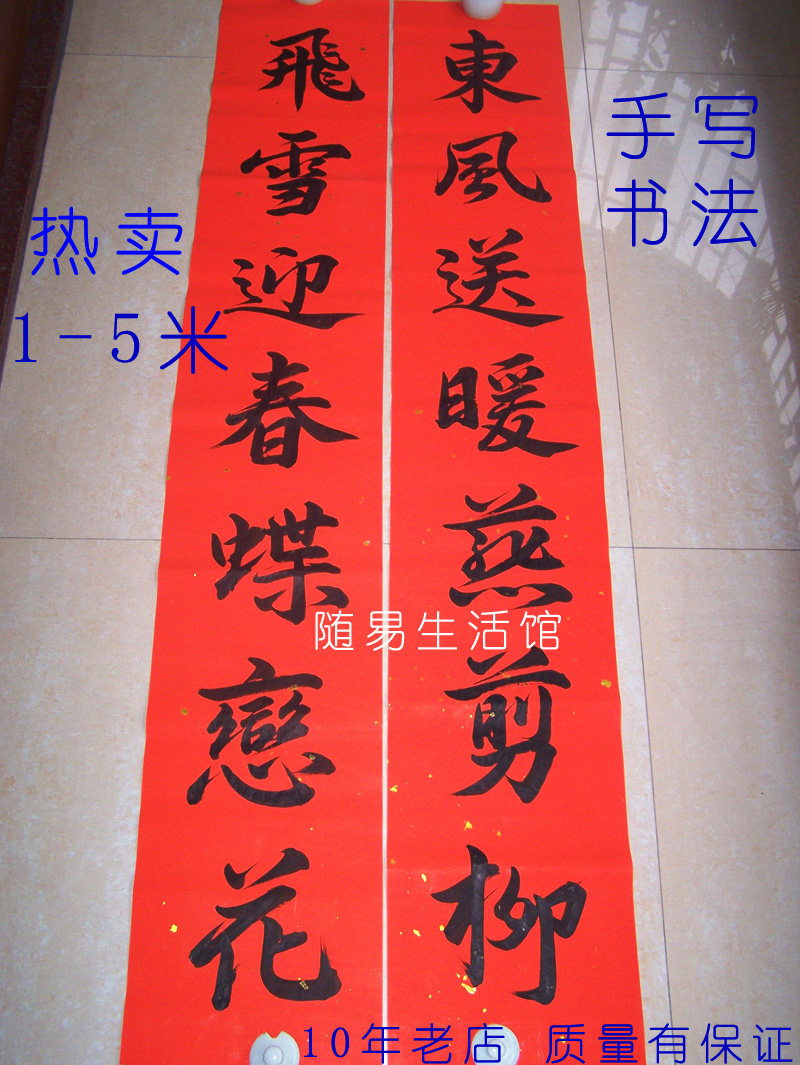 東風送暖燕剪柳
飛雪迎春蝶戀花
手写
书法
热卖
1-5米
随易生活馆
10年老店 质量有保证